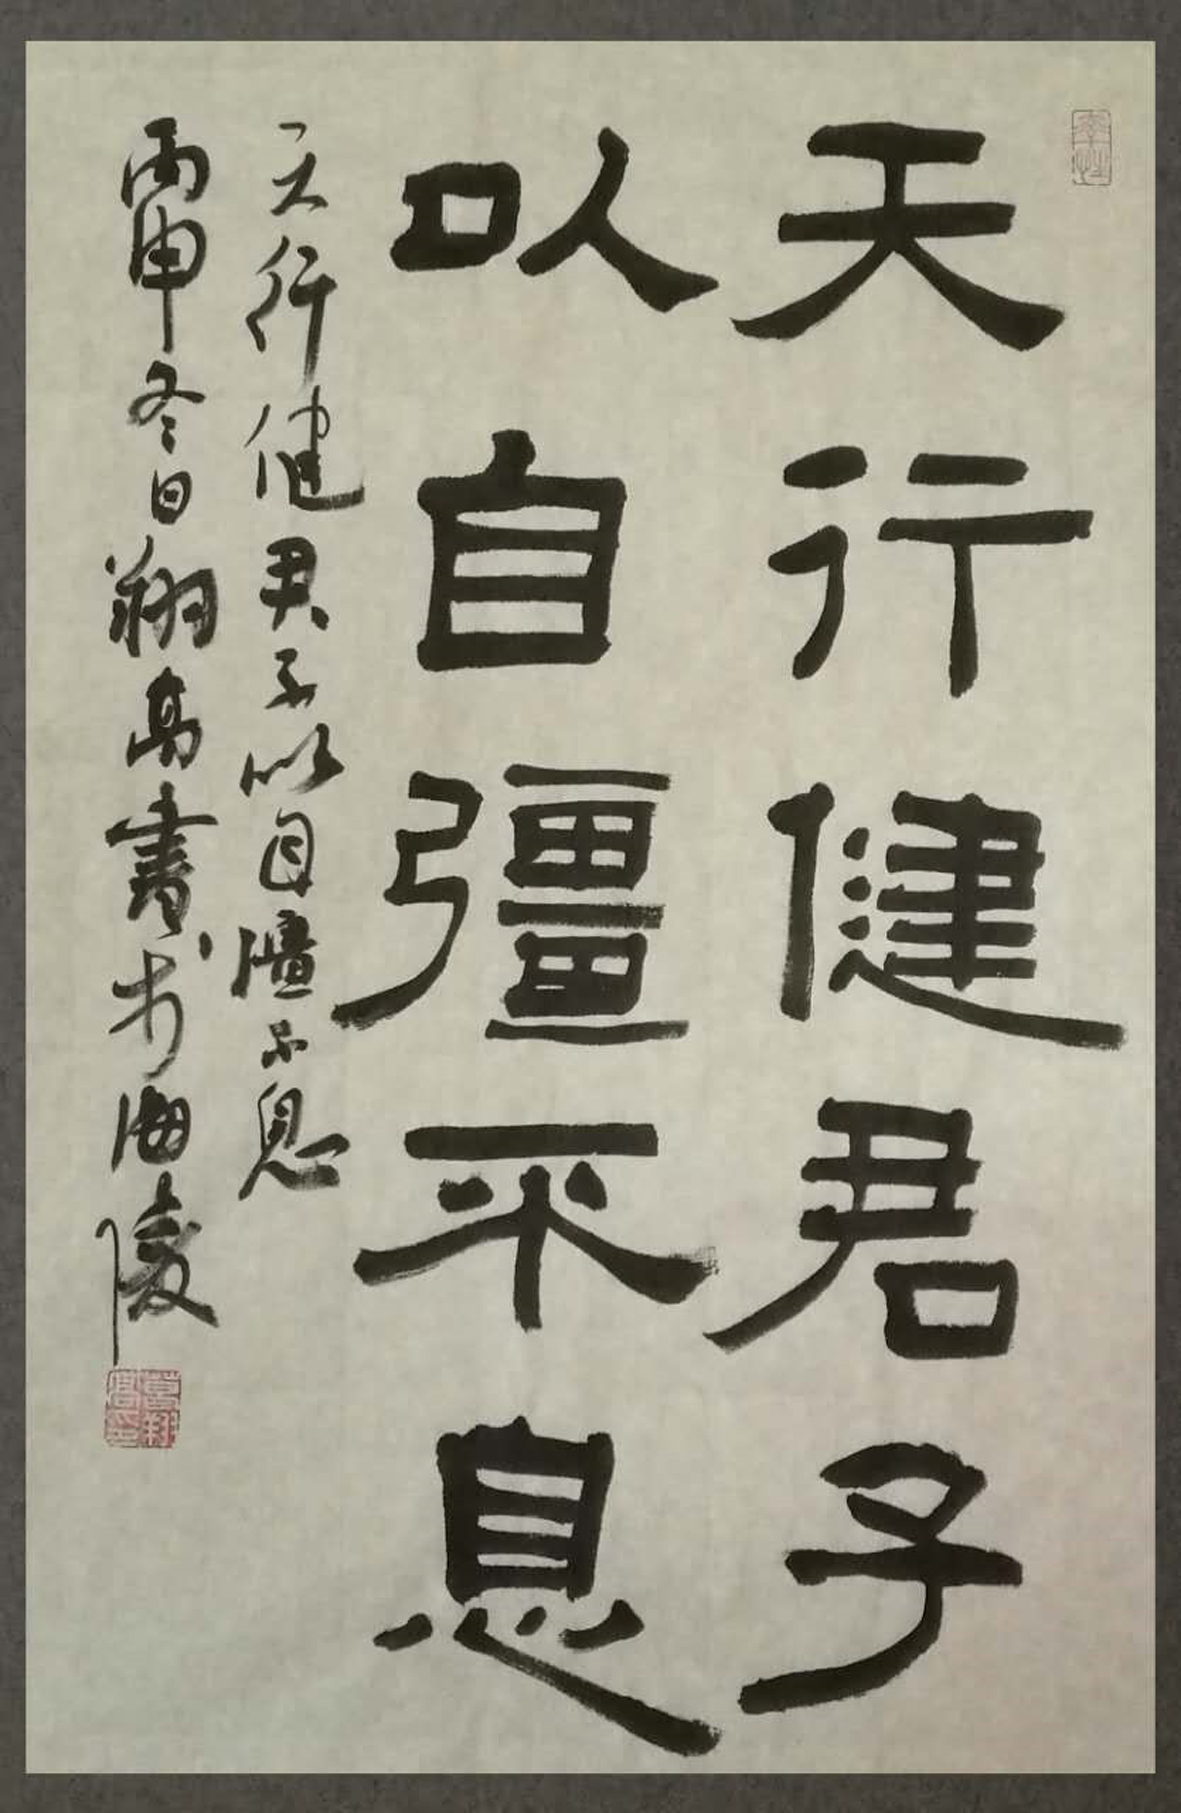 天行健君子
以自彊不息
天行健君子以自彊不息
丙申冬日翔高书于海陵